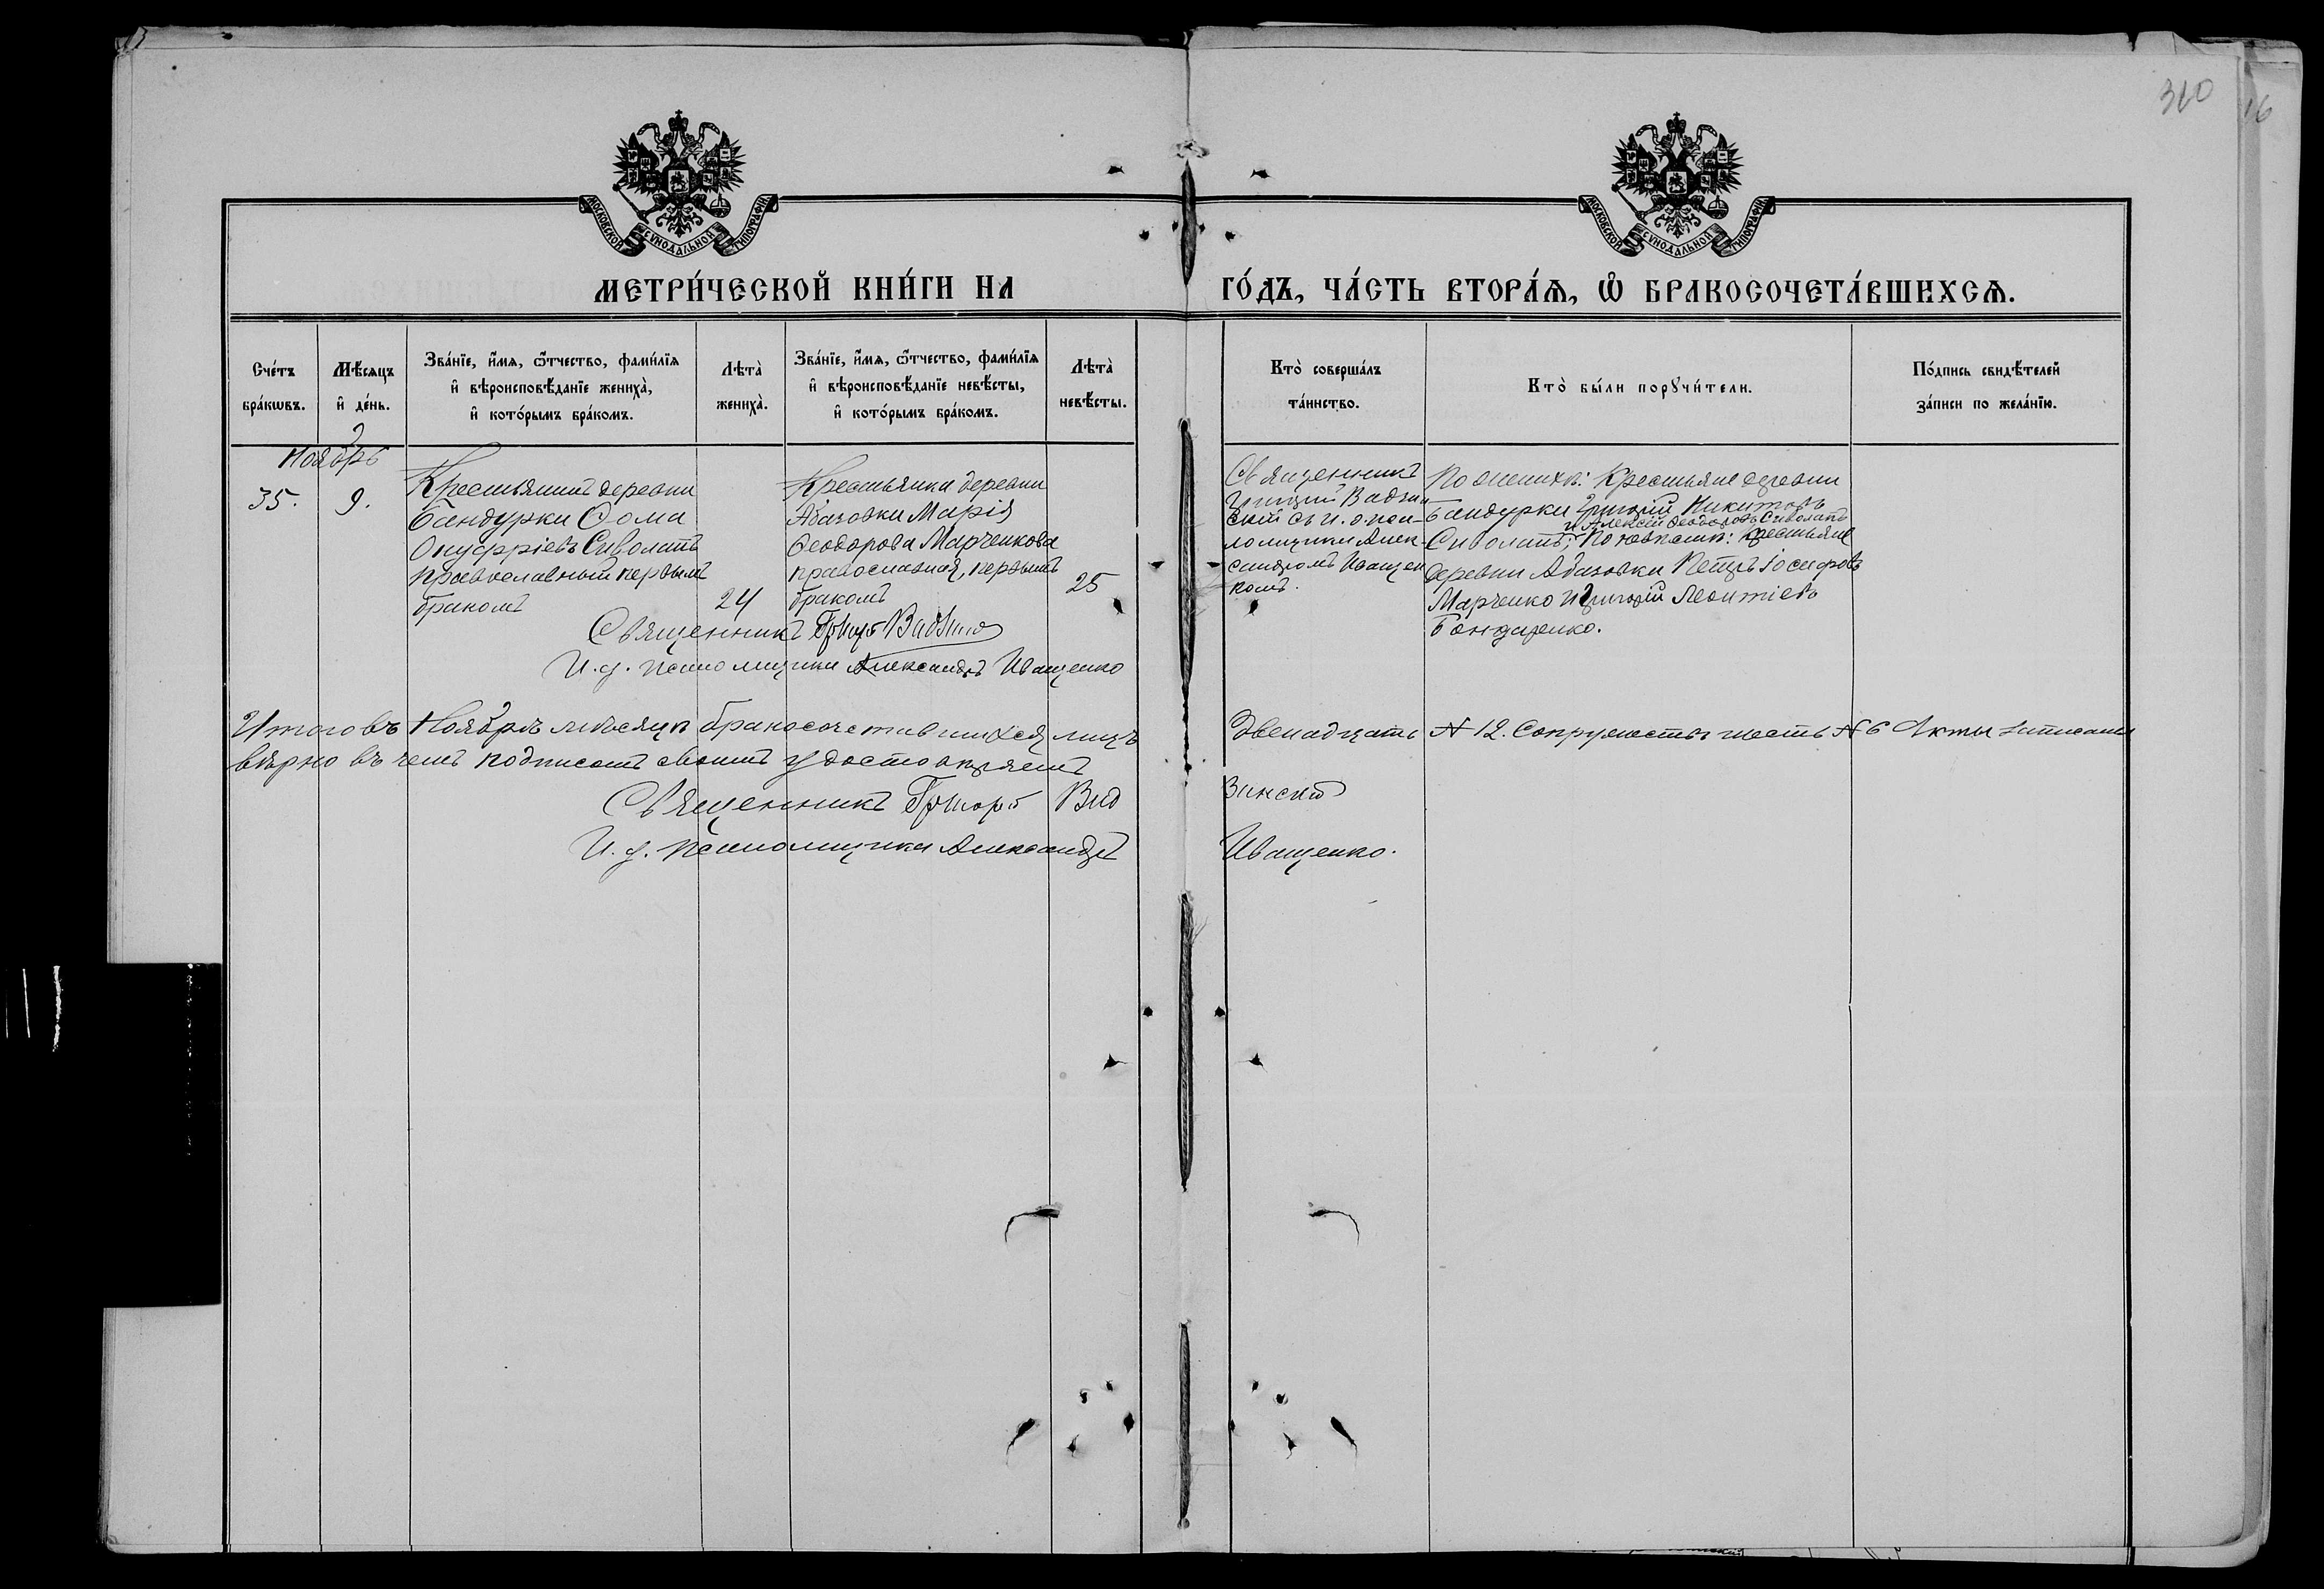 310
16
МОСКОВСКОЙ СѴНОДАЛЬНОЙ ТИПОГРАФІИ
МОСКОВСКОЙ СѴНОДАЛЬНОЙ ТИПОГРАФІИ
МЕТРИ́ЧЕСКОЙ КНИ́ГИ НА ГО́ДЪ, ЧА́СТЬ ВТОРА́Ѧ, Ѽ БРАКОСОЧЕТА́ВШИХСѦ.
Сче́тъ
бра́кѡвъ.
Мѣ́сяцъ
и҆ де́нь.
Зва́нїе, и҆́мя, ѻ҆́тчество, фами́лїя
и҆ вѣроисповѣ́данїе жениха̀,
и҆ кото́рымъ бра́комъ.
Лѣта̀
жениха̀.
Зва́нїе, и҆́мя, ѻ҆́тчество, фами́лїя
и҆ вѣроисповѣ́данїе невѣ́сты,
и҆ кото́рымъ бра́комъ.
Лѣта̀
невѣ́сты.
Кто̀ соверша́лъ
та́инство.
Кто̀ бы́ли порꙋчи́тели.
По́дпись свидѣ́телей
за́писи по жела́нїю.
Ноябрь
35.
9.
Крестьянинъ деревни
Бандурки Ѳома
Онуфріевъ Сиволапъ
православный первымъ
бракомъ
24
Крестьянка деревни
Абазовки Марія
Ѳеодорова Марченкова
православная, первымъ
бракомъ
25
Священникъ
Григорій Видзин-
скій съ и. д. пса-
ломщика Алек-
сандромъ Иващен
комъ.
По женихѣ: Крестьяне деревни
Бандурки Григорій Никитовъ
и Алексій Ѳеодоровъ Сиволапъ
Сиволапъ; По невѣстѣ: Крестьяне
деревни Абазовки Петръ Іосифовъ
Марченко и Григорій Леонтіевъ
Бондаренко.
Священникъ Григорій
И. д. псаломщика Александръ Иващенко
Итого въ Ноябрѣ мѣсяцѣ бракосочетавшихся лицъ Двенадцать № 12. Супружествъ шесть № 6 Акты записаны
вѣрно въ чемъ подписомъ своимъ удостовѣряемъ
Священникъ Григорій Вид зинскій
И. д. псаломщика Александръ Иващенко.